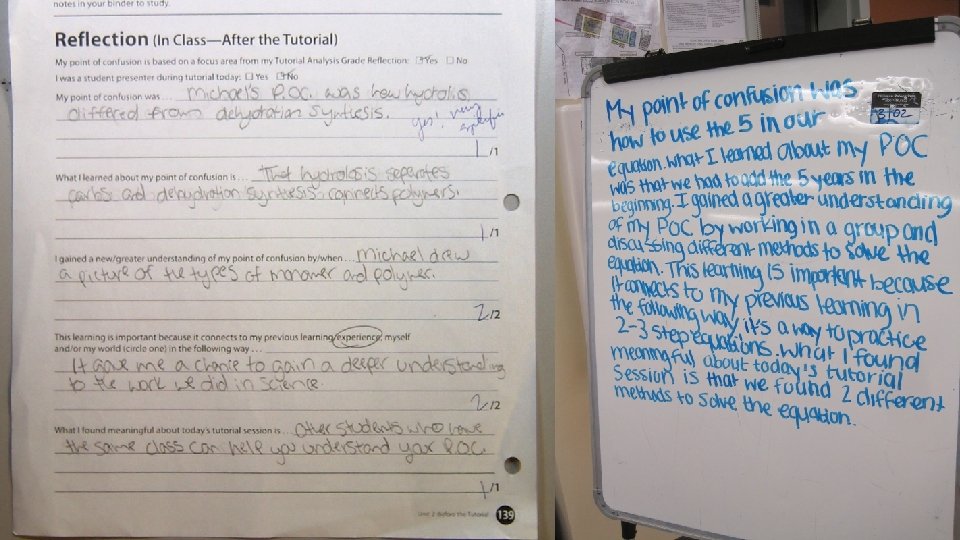 notes in your binder to study.
Reflection (In Class—After the Tutorial)
My point of confusion is based on a focus area from my Tutorial Analysis Grade Reflection: Yes No
I was a student presenter during tutorial today: Yes No
My point of confusion was... Michael's P.O.C. was how hydrolosis
differed from dehydration synthesis.
yes! very
1/1
What I learned about my point of confusion is... That hydrolosis seperates
carbs and dehydration synthesis connects polymers.
1/1
I gained a new/greater understanding of my point of confusion by/when... Michael drew
a picture of the types of monomer and polymer.
2/2
This learning is important because it connects to my previous learning/experience/myself
and/or my world (circle one) in the following way...
It gave me a chance to gain a deeper understanding
to the work we did in science.
2/2
What I found meaningful about today's tutorial session is... other students who have
the same class can help you understand your P.O.C.
1/1
Unit 2: Before the Tutorial 139
My point of confusion was
how to use the 5 in our
equation. What I learned about my POC
was that we had to add the 5 years in the
beginning. I gained a greater understanding
of my POC by working in a group and
discussing different methods to solve the
equation. This learning is important because
it connects to my previous learning in
the following way, it's a way to practice
2-3 step equations. What I found
meaningful about today's tutorial
session is that we found 2 different
methods to solve the equation.